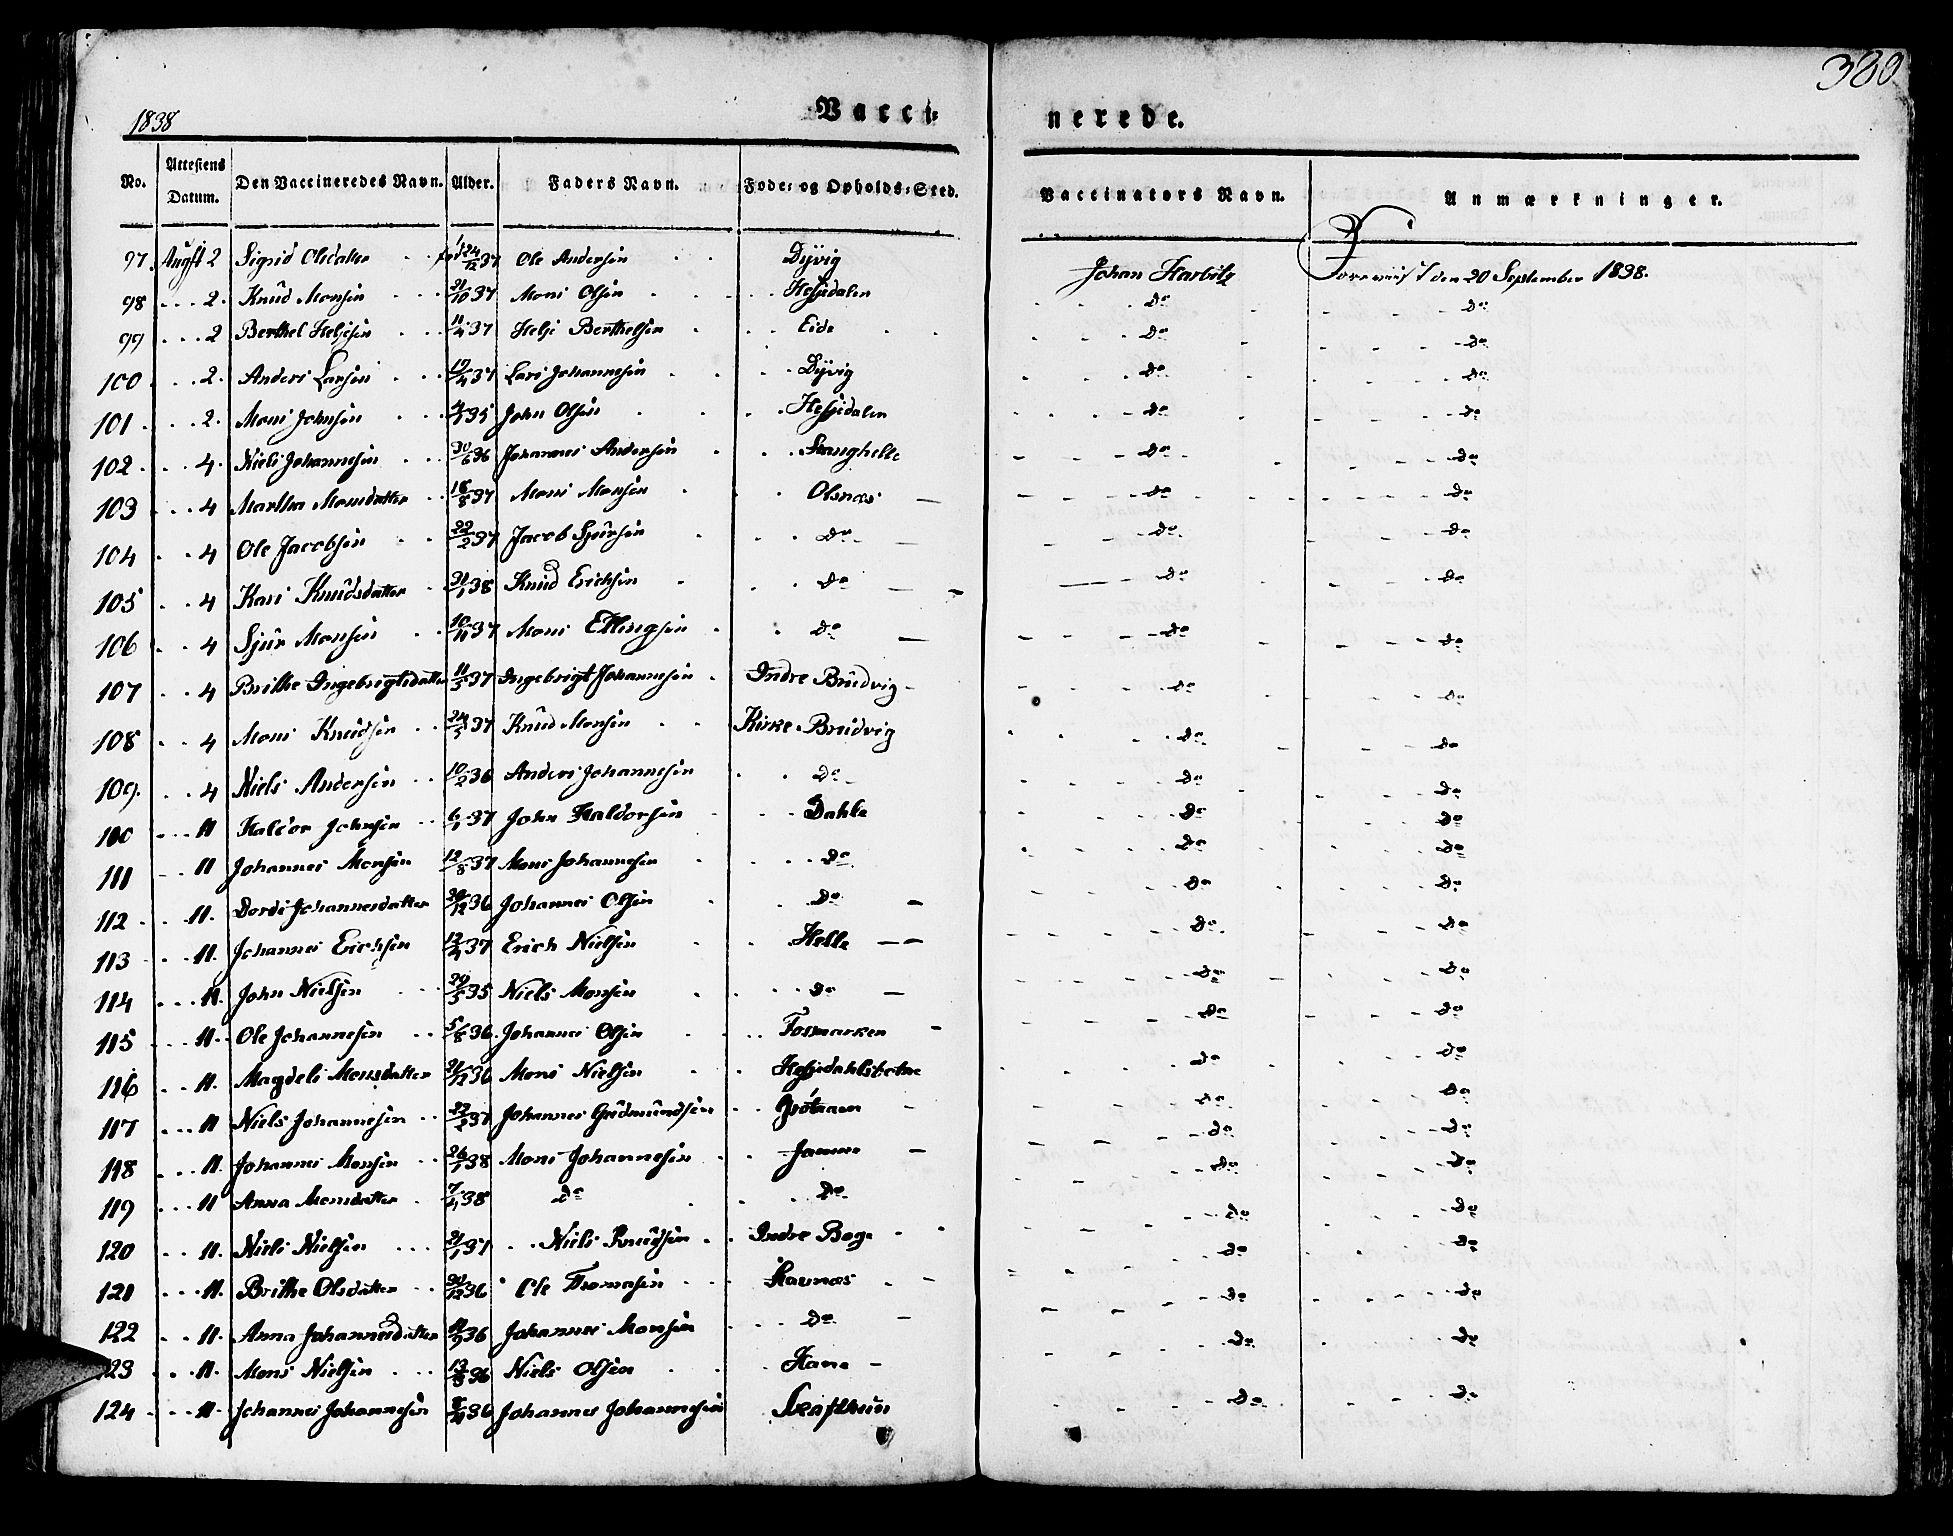 380
1838
Vacci=
nerede.
No.
Attestens Datum.
Den Vaccineredes Navn.
Alder.
Faders Navn.
Føde= og Opholds=Sted.
Vaccinators Navn.
Anmærkninger.
97. August 2 Sigrid Olsdatter 24/12 37 Ole Andersen Dyvig Johan Harbitz Foreviist den 20 September 1838.
98 2. Knud Monsen 21/10 37 Mons Olsen Hesjedalen do do
99 2 Berthel Heljesen 11/4 37 Helje Berthelsen Eide do do
100 2. Anders Larsen 19/4 37 Lars Johannesen Dyvig do do
101 2. Mons Johnsen 35 John Olsen Hesjedalen do do
102 4. Niels Johannesen 30/6 36 Johannes Andersen Stanghelle do do
103 4 Martha Monsdatter 18/8 37 Mons Monsen Olsnæs do do
104 4 Ole Jacobsen 22/2 37 Jacob Sjursen do do do
105 4 Kari Knudsdatter 31/1 38 Knud Erichsen do do do
106 4 Sjur Monsen 10/11 37 Mons Ellingsen do do do
107 4 Brithe Ingebrigtsdatter 11/5 37 Ingebrigt Johannesen Indre Brudvig do do
108 4 Mons Knudsen 24/5 37 Knud Monsen Kirke Brudvig do do
109. 4 Niels Andersen 10/2 36 Anders Johannesen do do do
110 11 Haldor Johnsen 6/1 37 John Haldorsen Dahle do do
111 11 Johannes Monsen 12/8 37 Mons Johannesen do do do
112 11. Dorde Johannesdatter 12 36 Johannes Olsen do do do
113 11. Johannes Erichsen 12 37 Erich Nielsen Helle do do
114 11. John Nielsen 20/5 35 Niels Monsen do do do
115 11. Ole Johannesen 5/8 36 Johannes Olsen Fosmarken do do
116 11. Magdeli Monsdatter 21/12 36 Mons Nielsen Hesjedahlsbotne do do
117 11 Niels Johannesen 22/2 37 Johannes Gudmundsen do do
118 11. Johannes Monsen 26/1 38 Mons Johannesen Jamne do do
119 11 Anna Monsdatter 38 do do do do
120 11. Niels Nielsen 21/1 37 Niels Knudsen Indre Boge do do
121 11. Brithe Olsdatter 30/12 36 Ole Thomasen Stavnæs do do
122 11. Anna Johannesdatter 36 Johannes Monsen do do do
123 11. Mons Nielsen 13/8 36 Niels Olsen Hane do do
124 11 Johannes Johannesen 36 Johannes Johannesen Skaftnun do do